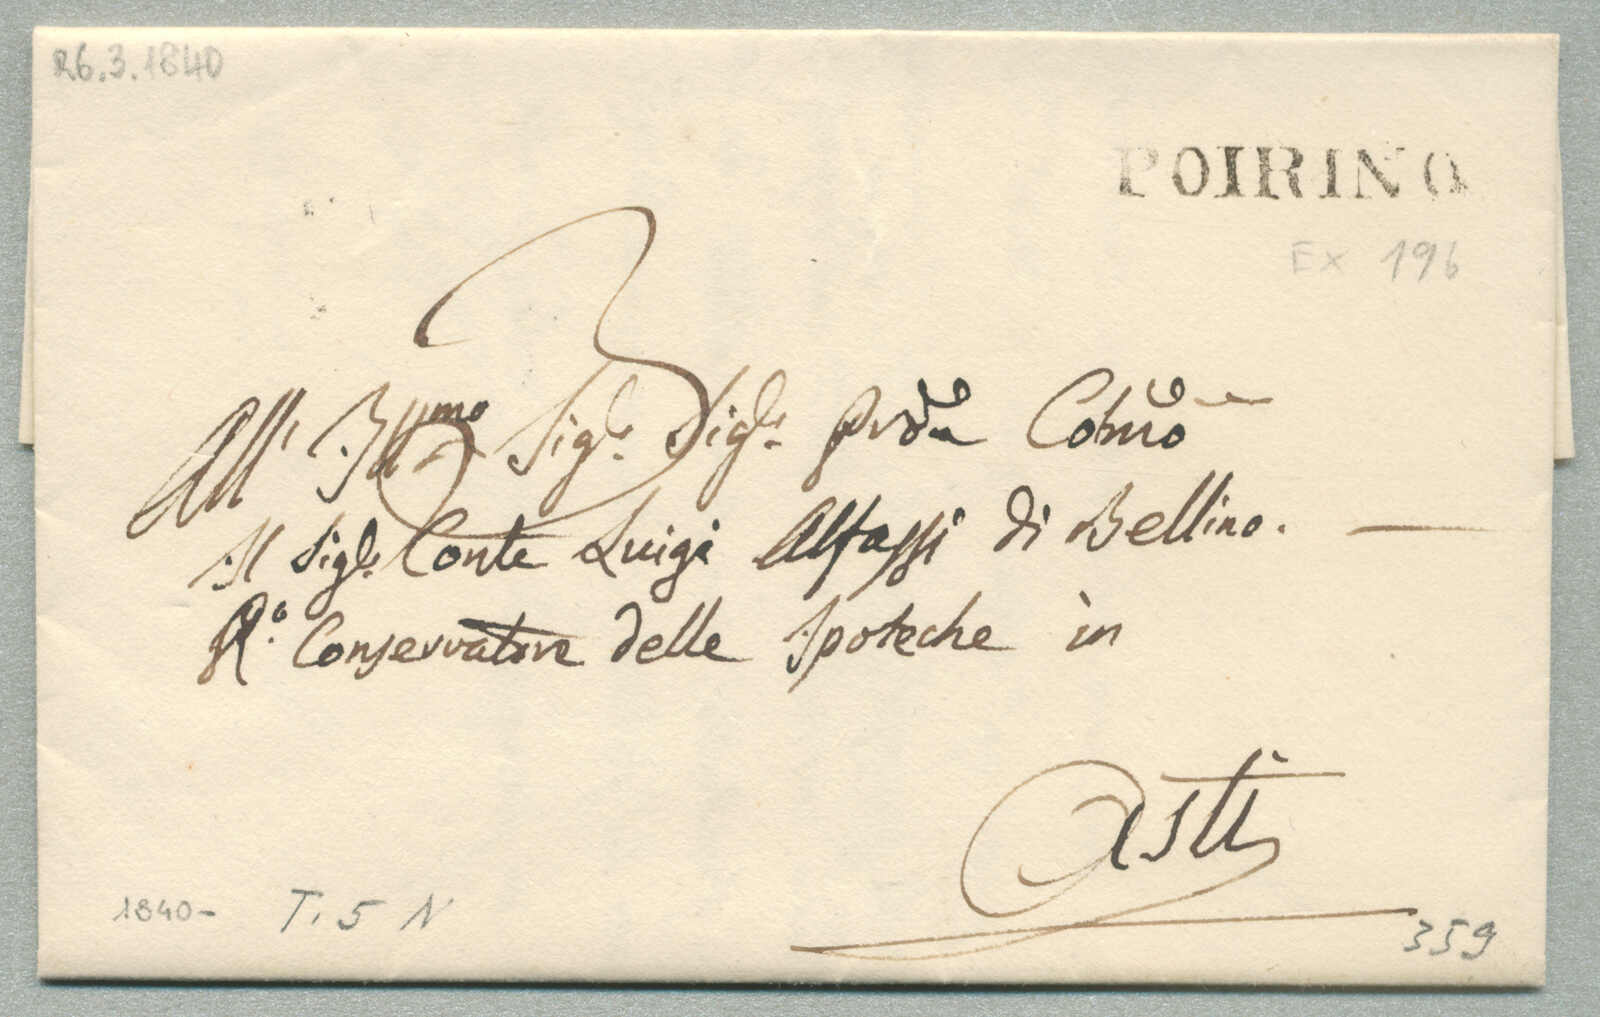 26.3.1840
POIRINO
EX 196
3
All' Ill.mo Sig.r Sig.r Prō͞n Col͞mo
Il Sig.r Conte Luigi Alfassi di Bellino. —
R.o Conservatore delle Ipoteche in
Asti
1840- T. 5 N
359